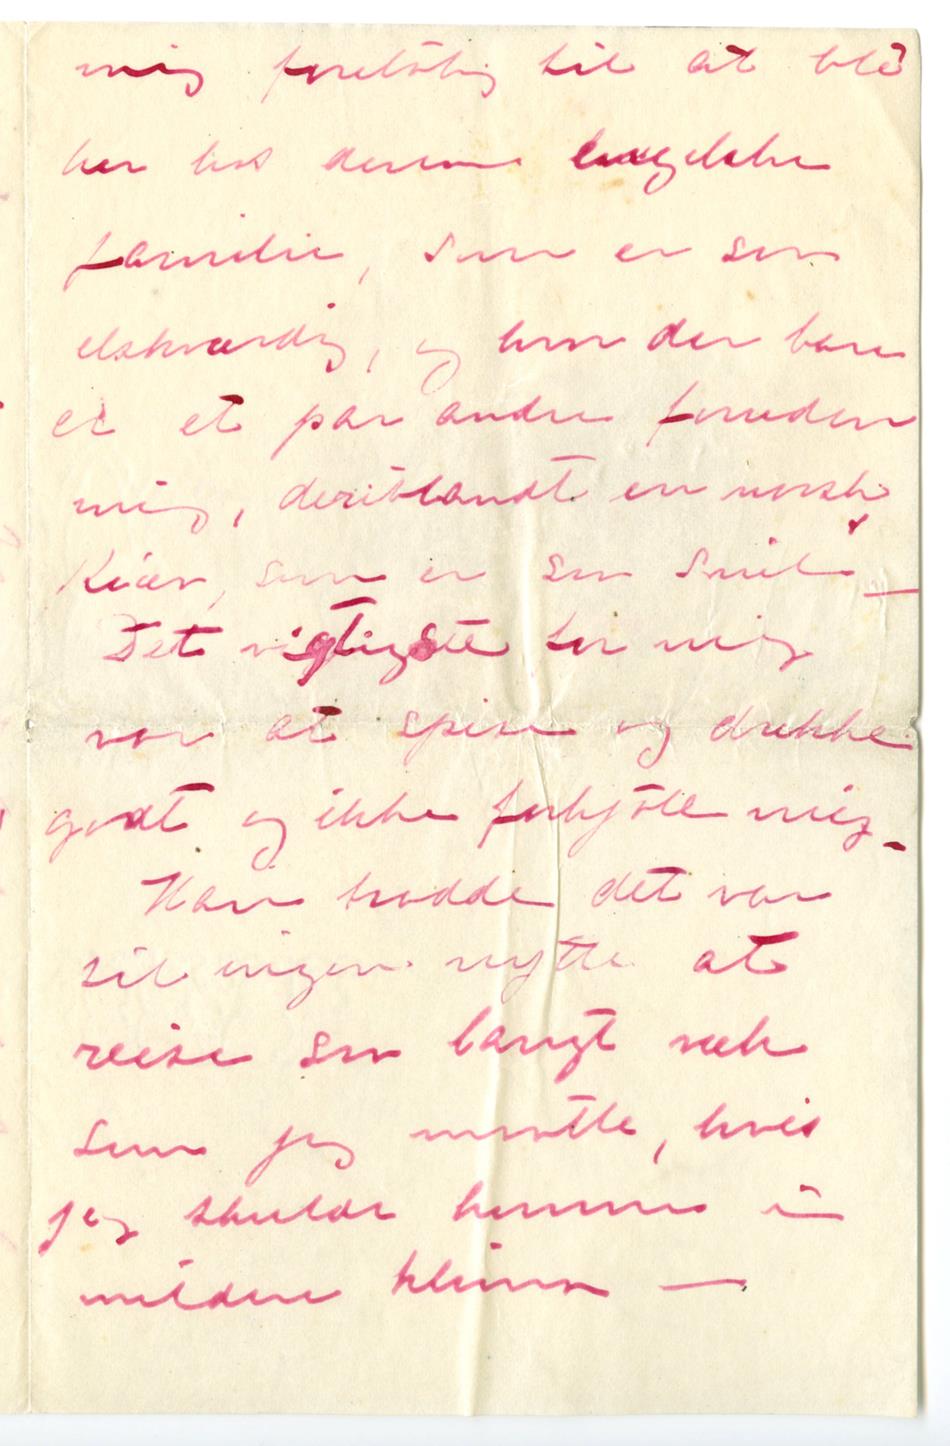 mig foreløbig til at bli
her hos denne engelske
familie, som er son
elskværdig, og hvor der bare
er et par andre foruden
mig, deriblandt en norsk
Kiær, som er son snil —
Det vigtigste for mig
var at spise og drikke
godt og ikke forkjøle mig.
Han trodde det var
til ingen nytte at
reise son langt væk
som jeg maatte, hvis
jeg skulde komme i
mildere klima —